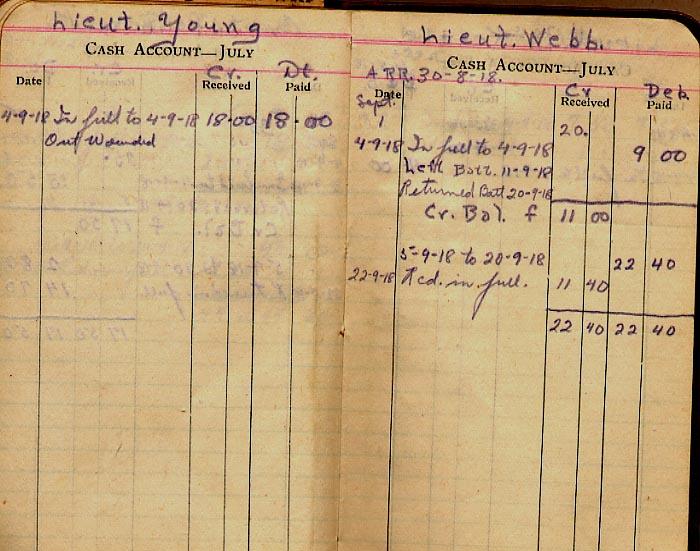 Lieut. Young
CASH ACCOUNT—JULY
Cr. Dt.
Date Received Paid
4-9-18 In full to 4-9-18 18-00 18-00
Out Wounded
Lieut. Webb.
CASH ACCOUNT—JULY
ARR. 30-8-18. Cr Deb
Date Received Paid
Sept.
1 20.
4-9-18 In full to 4-9-18 9 00
Left Batt. 11-9-18
Returned Batt 20-9-18
Cr. Bal. f 11 00
5-9-18 to 20-9-18 22 40
22-9-18 Rcd. in full. 11 40
22 40 22 40